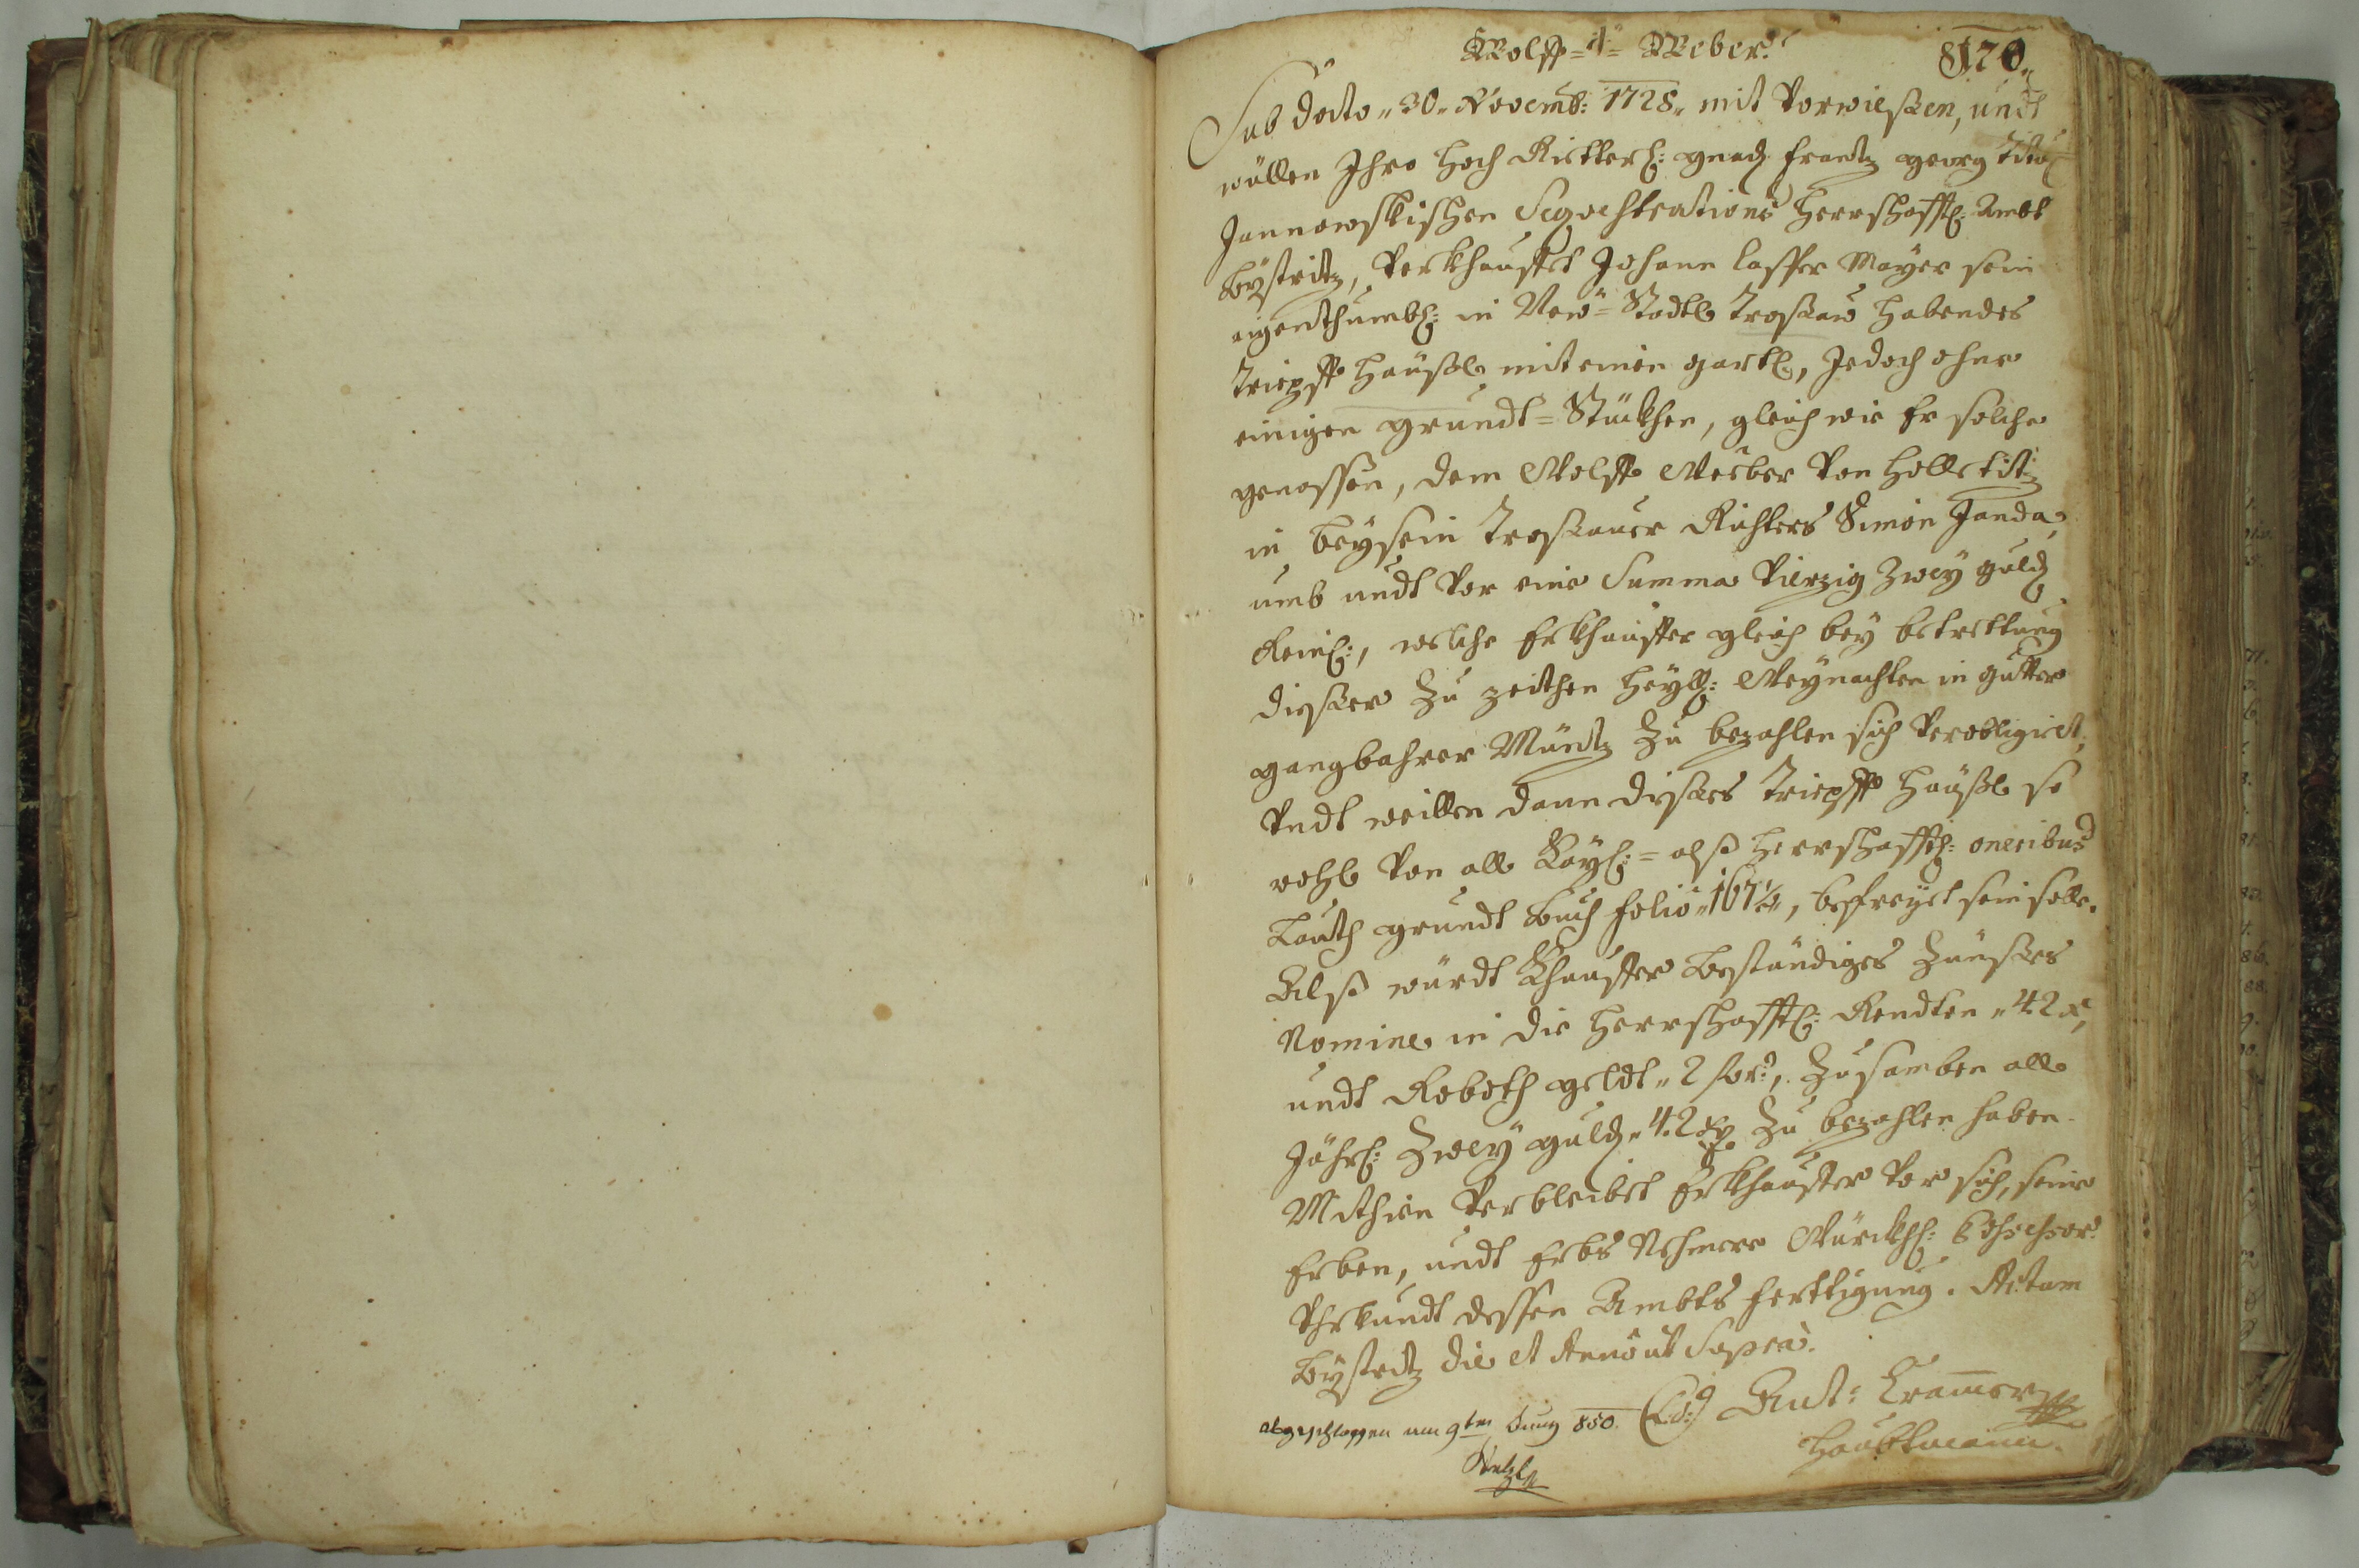 Wolff = Weber
870
Sub Dato 30 Novemb: 1728 mit Vorwießen, undt
willen Ihro Hoch Ritterl: gnad frantz georg
Jannowskischen Sequestrations Herrschafftl: Ambt
Bystritz, Verkhauffet Johann Mayer sein
eigenthumbl: in New = Stadtl Troßaw habendes
Häußl mit einen gartl, Jedoch ohne
einigen grundt = Stückhen, gleich wie Er solche
genossen, dem Wolff Weeber Von Holletitz
in beysein Troßauer Richters Simon Janda,
umb undt Vor eine Summa Vierzig Zwey guld
Reinl:, welche Erkhauffer gleich bey bettrettung
dießer zu zeithen Heyll: Weynachten in gutter
gangbahrer Müntz zu bezahlen sich Verobligiret,
Undt weillen dann dießes Häußl so
wohl Von all Kayl: = alß Herrschafftl: oneribus
Lauth grundt Buch folio 167, befreyet sein solle.
Alß würdt Khauffer beständiges Zünßes
Nomine in die Herrschafftl: Rendten 42 x,
undt Roboth geldt 2 flor:, Zusamben alle
Jährl: Zwey guld 42 x zu bezahlen haben.
Mithin Verbleibet Erkhauffer Vor sich, seine
Erben, undt Erbs Nehmere Würckhl: Possessor
Uhrkundt dessen Ambts ferttigung. Actum
Bystritz die et Anno ut Supra.
abgeschlossen am 9ten Juny 850. (L:S:) Ant: Cramer
Haubtmann.